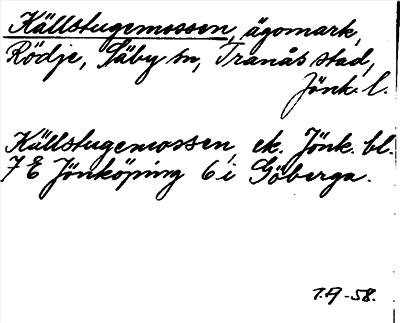 Källstugemossen, ägomark,
Rödje, Säby sn, Tranås stad,
Jönk. l.
Källstugemossen, ek. Jönk. bl.
7 E Jönköping 6 i Göberga.
1.9-58.